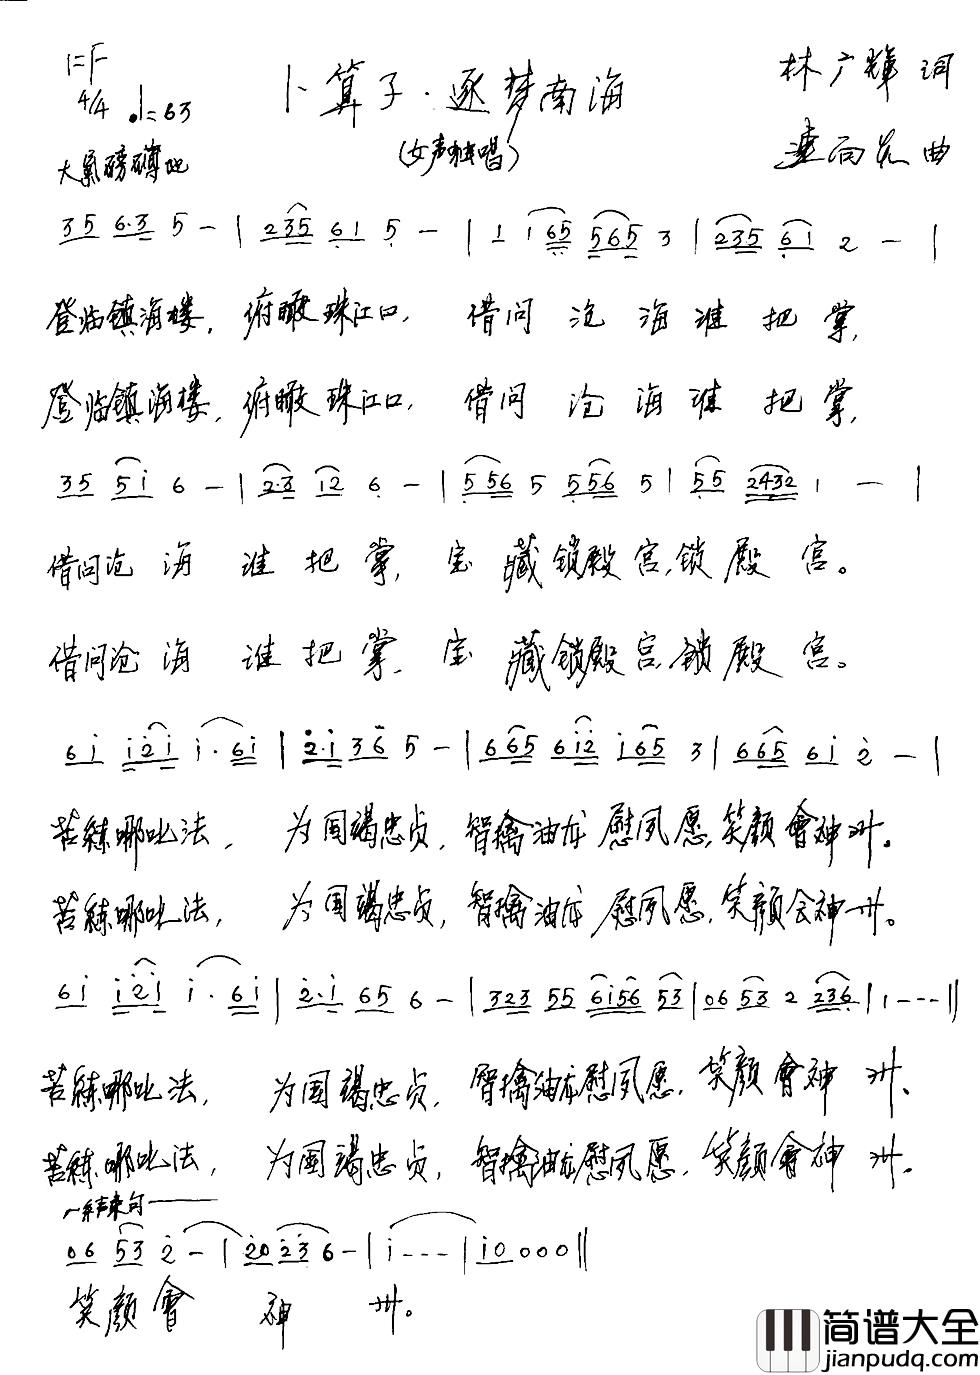 1=F
4/4 ♩=63
卜算子·逐梦南海
(女声独唱)
林广辉 词
曲
大气磅礴地
35 6·3 5 - | 235 61 5 - | 1 165 565 3 | 235 61 2 - |
登临镇海楼,俯瞰珠江口,借问沧海谁把掌,
登临镇海楼,俯瞰珠江口,借问沧海谁把掌,
35 51 6 - | 2·3 12 6 - | 556 5 556 5 | 55 2432 1 - |
借问沧海谁把掌,宝藏锁殿宫,锁殿宫。
借问沧海谁把掌,宝藏锁殿宫,锁殿宫。
61 121 1·61 | 2·1 36 5 - | 665 612 165 3 | 665 61 2 - |
苦练哪吒法,为国竭忠贞,智擒油龙慰夙愿,笑颜會神州。
苦练哪吒法,为国竭忠贞,智擒油龙慰夙愿,笑颜会神州。
61 121 1·61 | 2·1 65 6 - | 323 55 6156 53 | 06 53 2 236 | 1 - - - ||
苦练哪吒法,为国竭忠贞,智擒油龙慰夙愿,笑颜會神州、
苦练哪吒法,为国竭忠贞,智擒油龙慰夙愿,笑颜會神州。
结束句
06 53 2 - | 20 23 6 - | 1 - - - | 10 0 0 0 ||
笑颜會神州。
简谱大全
jianpudq.com